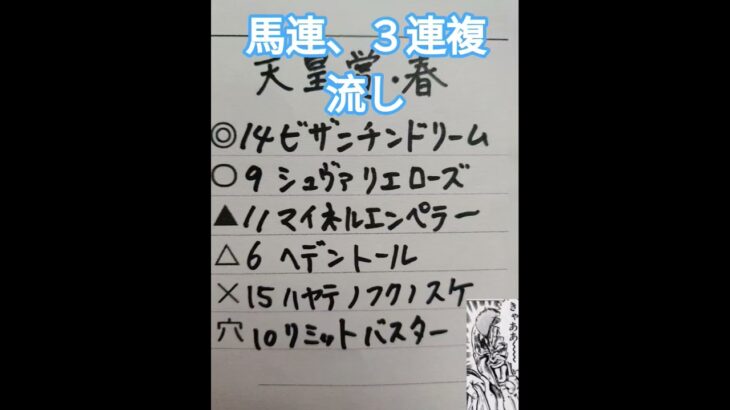 馬連、３連複
流し
天皇賞・春
◎14ビザンチンドリーム
○9 シュヴァリエローズ
▲11マイネルエンペラー
△6 ヘデントール
×15ハヤテノフクノスケ
穴10リミットバスター
きゃああ〜〜〜